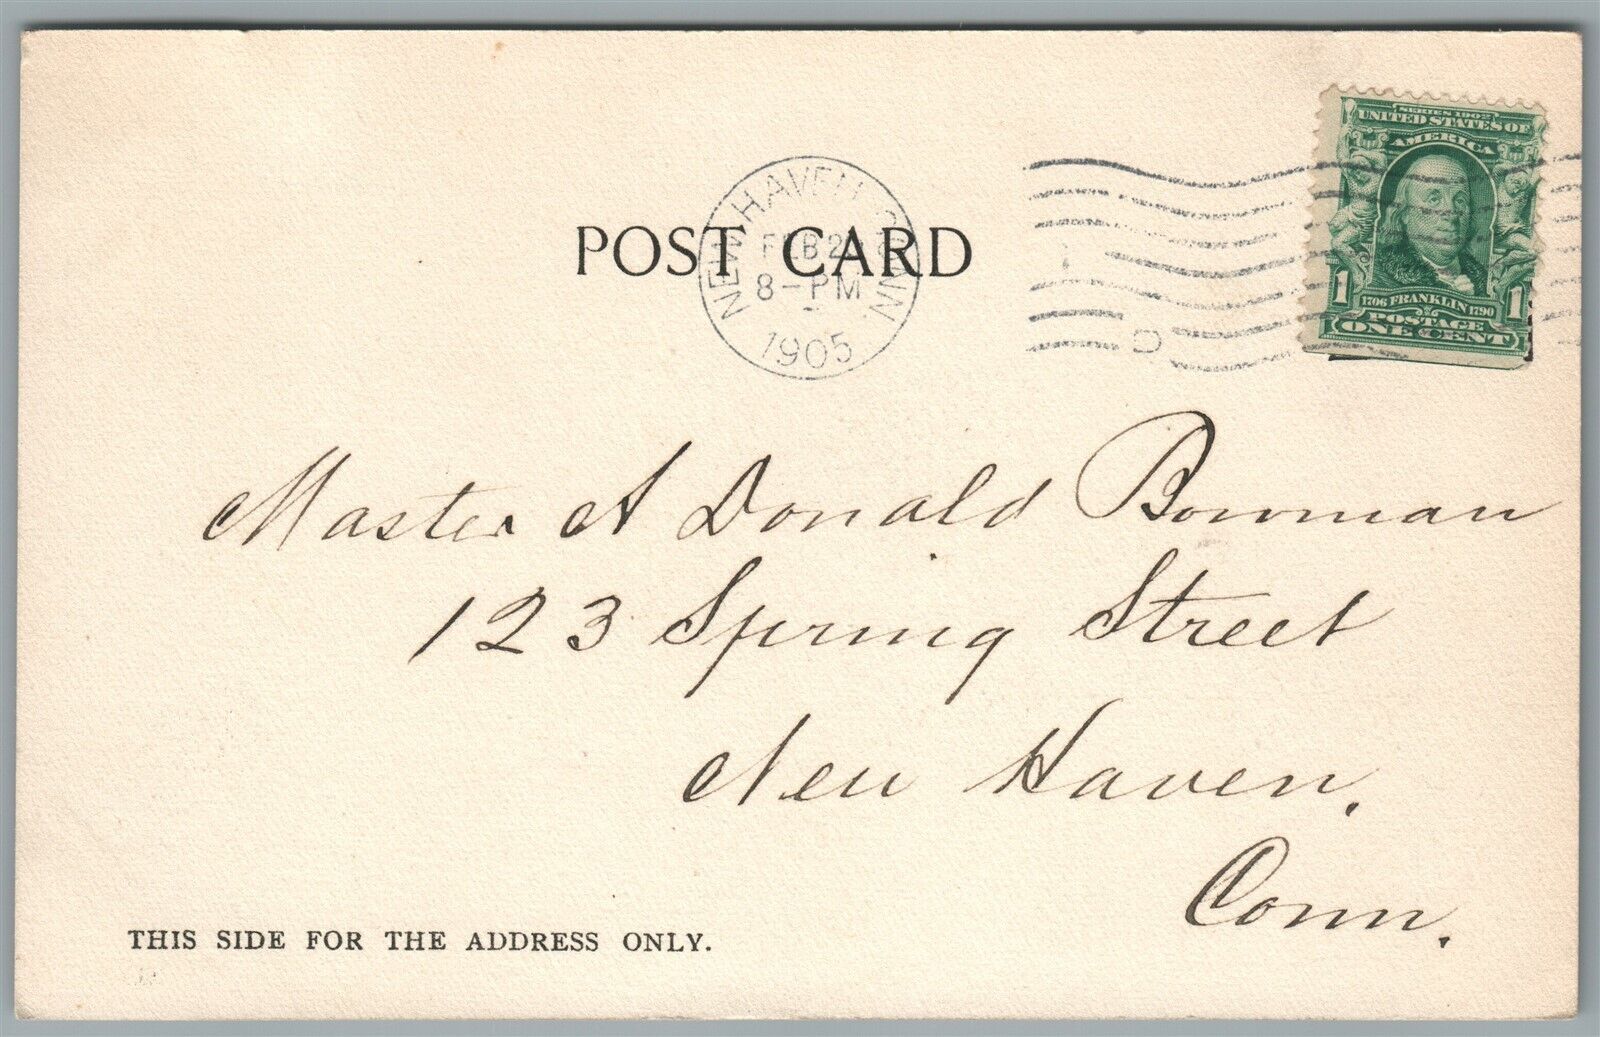 SERIES 1902
UNITED STATES OF
AMERICA
1 1
1706 FRANKLIN 1790
POSTAGE
ONE CENT
NEW HAVEN CONN.
FEB
8-PM
1905
POST CARD
D
Master A Donald Bowman
123 Spring Street
New Haven.
Conn.
THIS SIDE FOR THE ADDRESS ONLY.